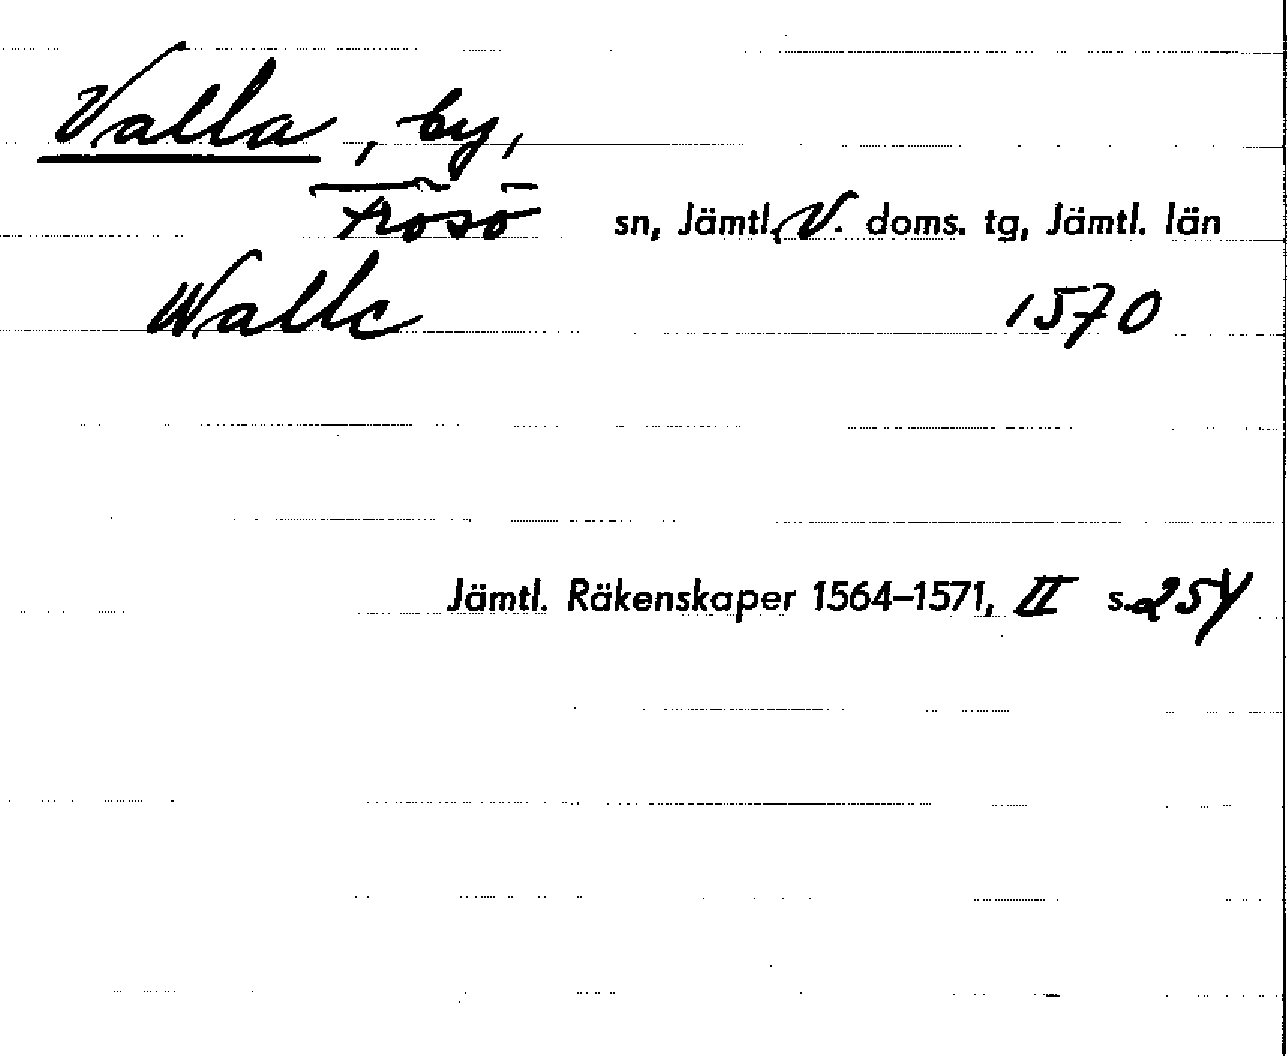 Valla, by,
Frösö sn, Jämtl. V. doms. tg, Jämtl. län
Walle 1570
Jämtl. Räkenskaper 1564–1571, II s. 254